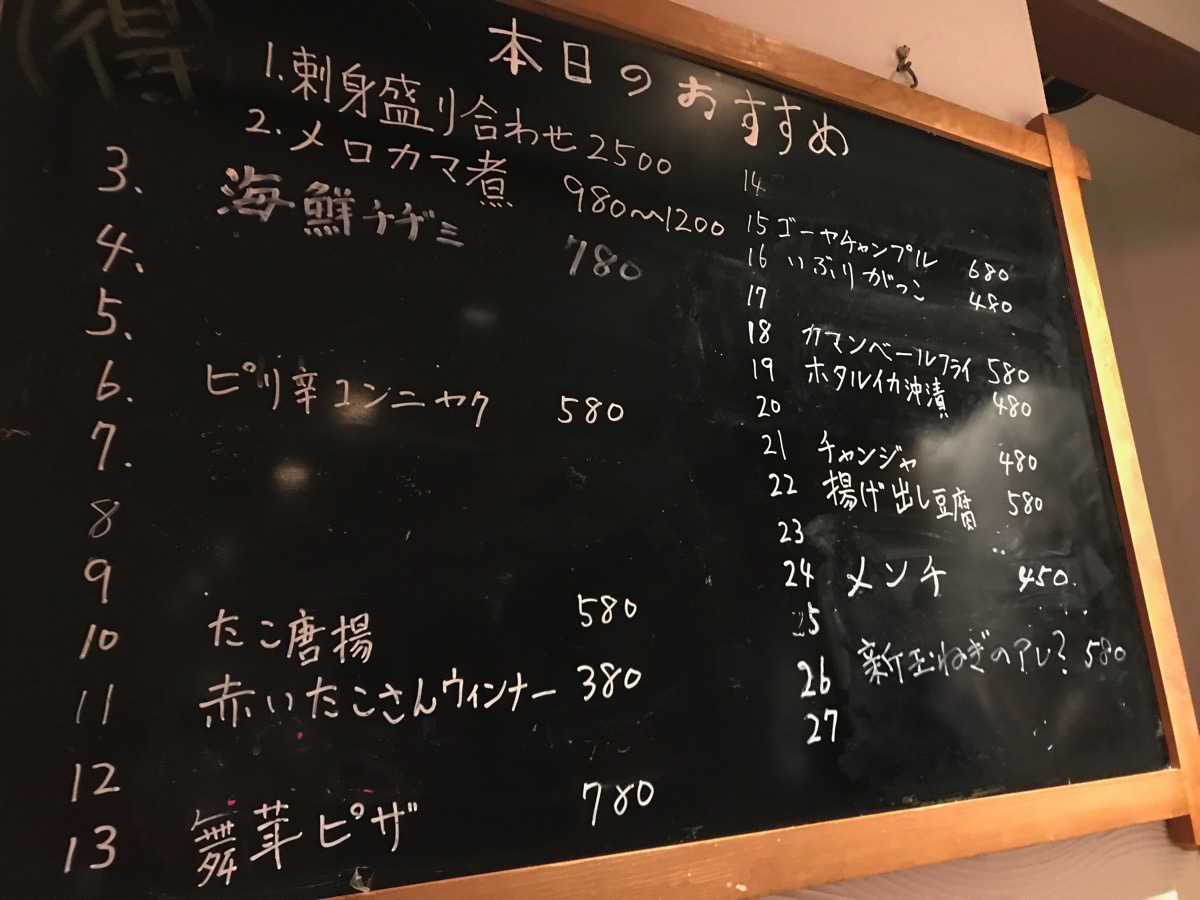 得
本日のおすすめ
1. 刺身盛り合わせ 2500
2. メロカマ煮 980〜1200
3. 海鮮チヂミ 780
4.
5.
6. ピリ辛コンニャク 580
7.
8
9
10 たこ唐揚 580
11 赤いたこさんウィンナー 380
12
13 舞茸ピザ 780
14
15 ゴーヤチャンプル 680
16 いぶりがっこ 480
17
18 カマンベールフライ 580
19 ホタルイカ沖漬 480
20
21 チャンジャ 480
22 揚げ出し豆腐 580
23
24 メンチ 450.
25
26 新玉ねぎのアレ? 580
27